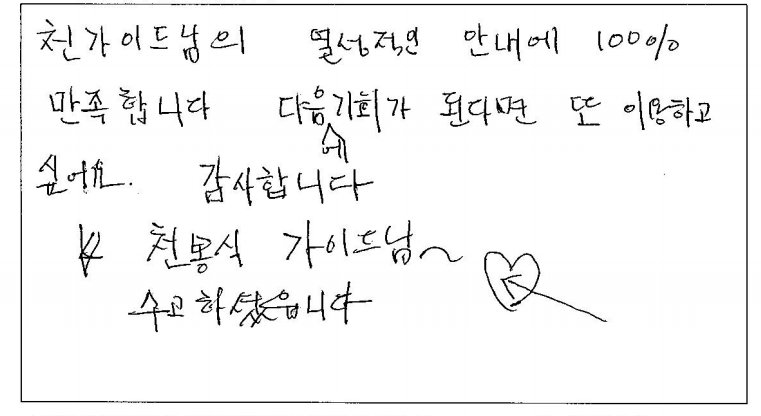 천가이드님의 열성적인 안내에 100%
만족합니다 다음에기회가 된다면 또 이용하고
싶어요. 감사합니다
천봉식 가이드님~
수고하셨읍니다